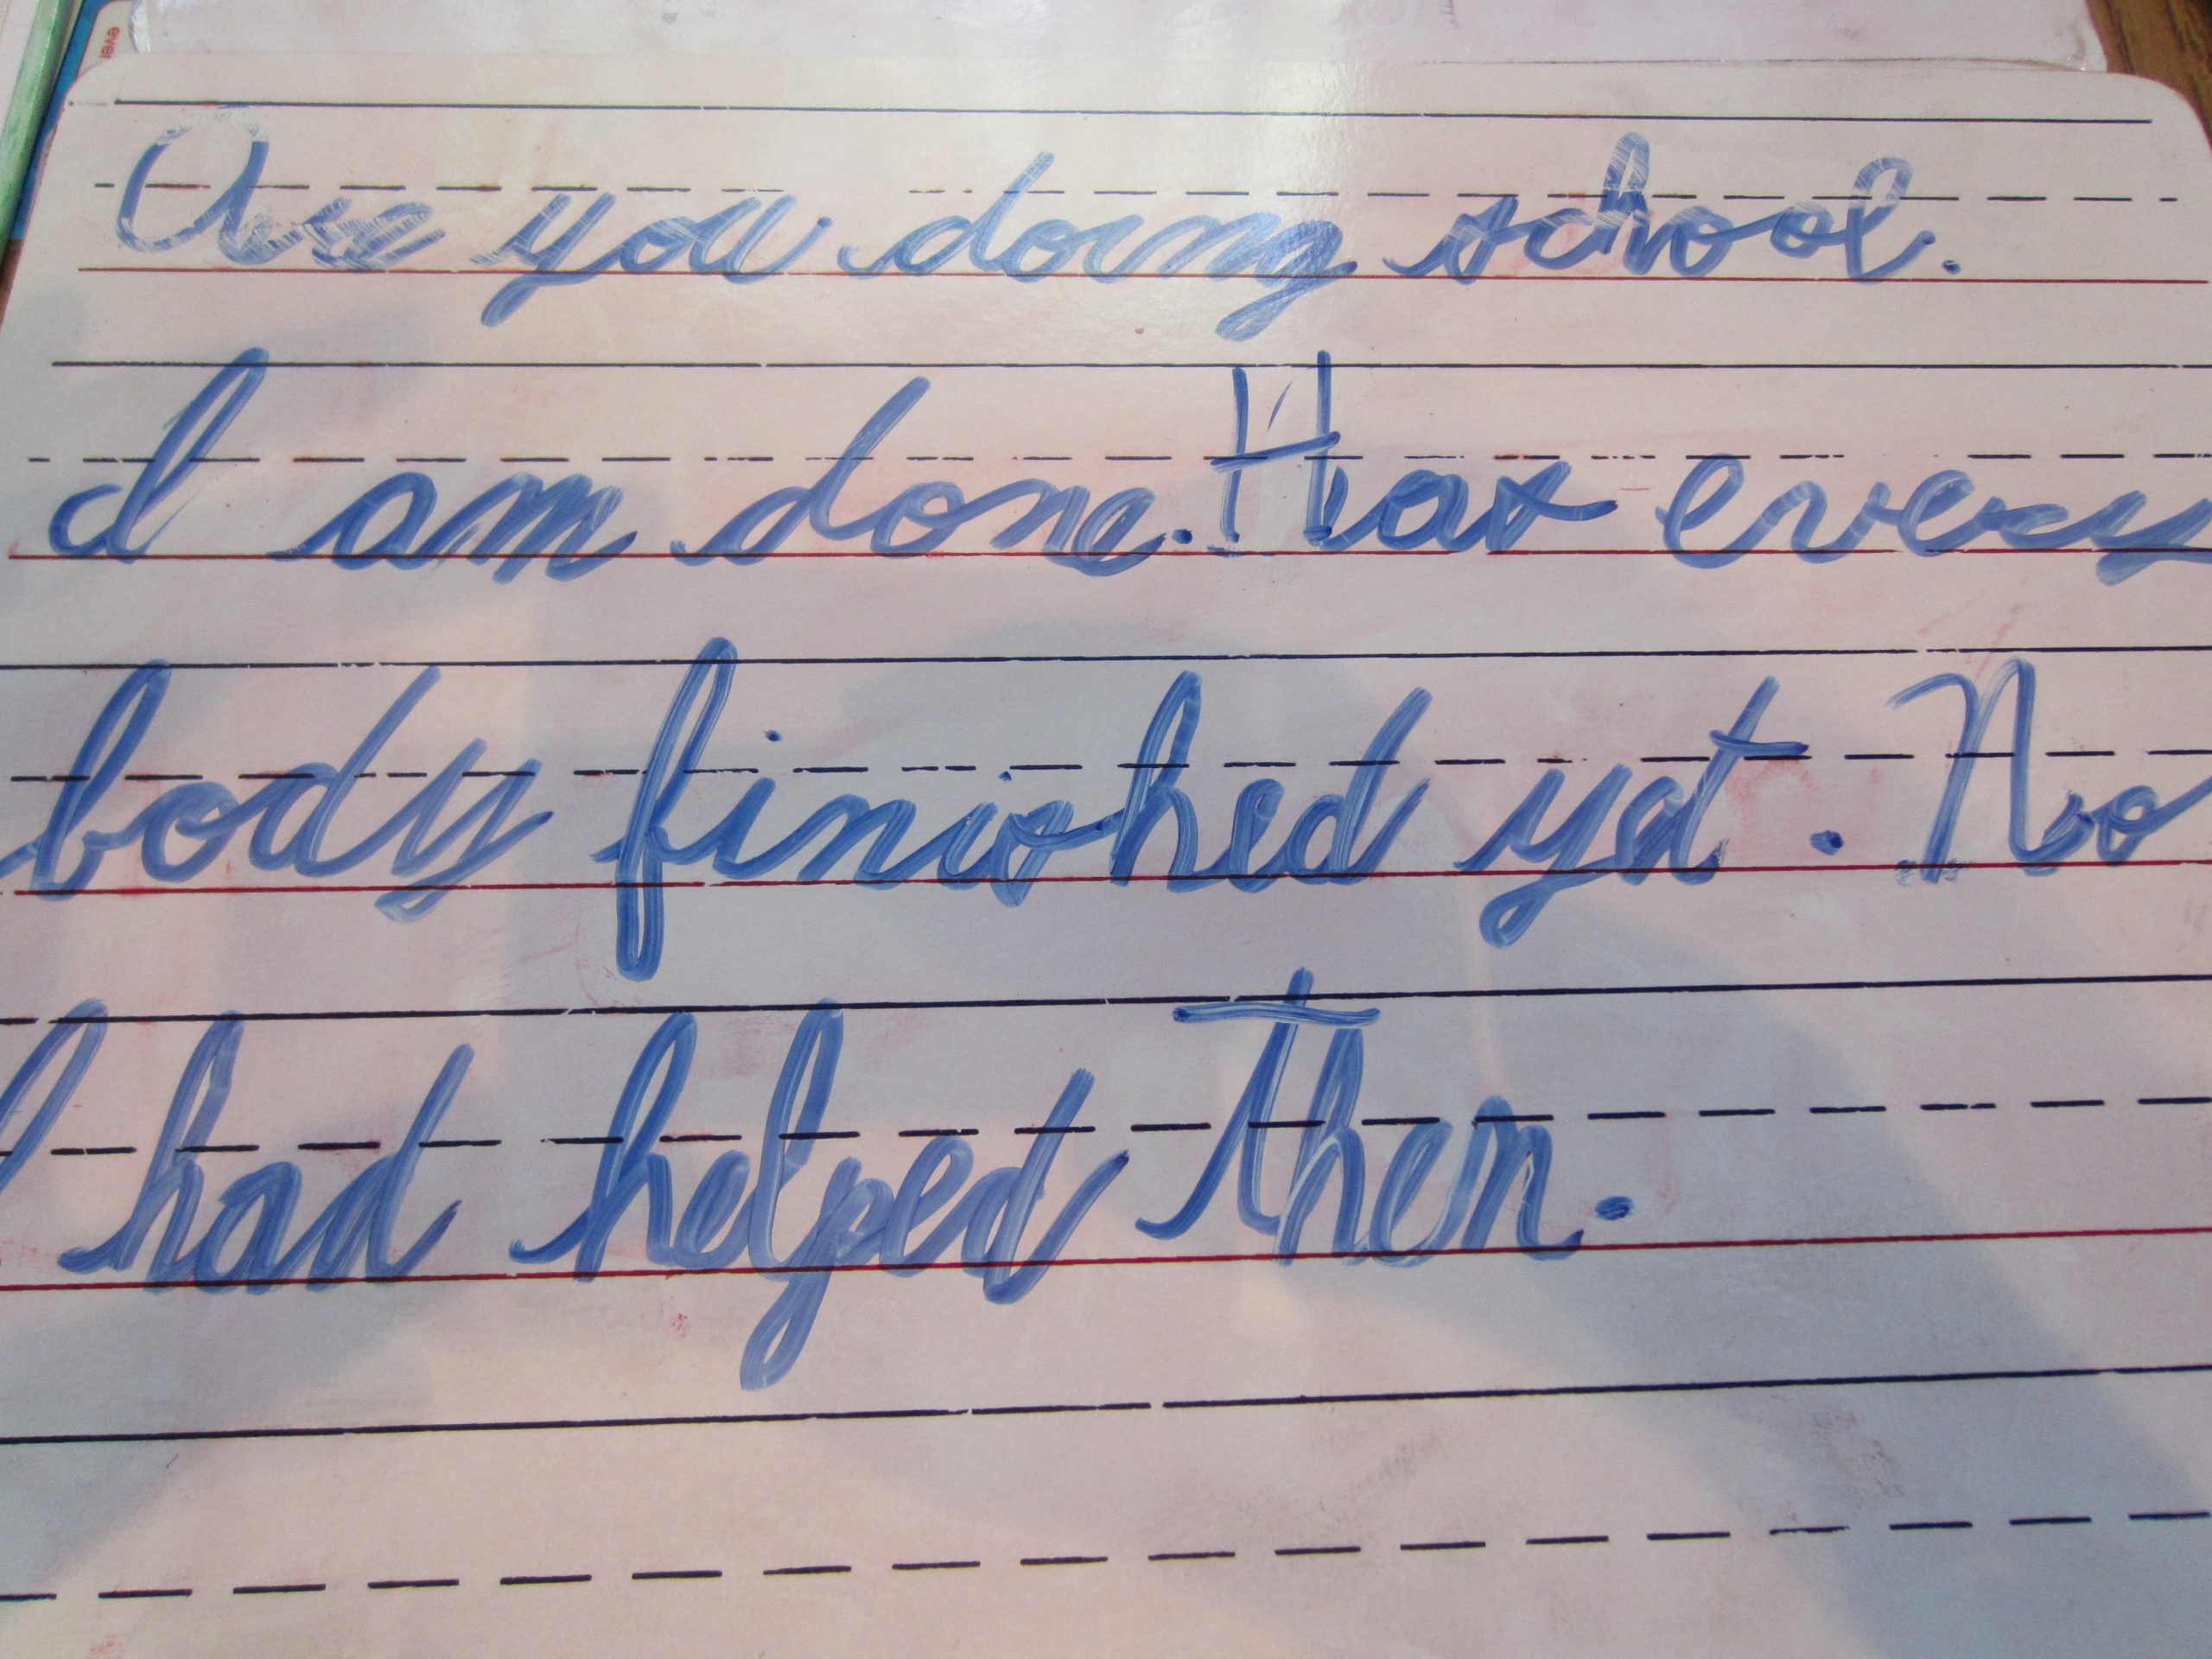 Are you doing school.
I am done. Has every
body finished yet. No
I had helped them.